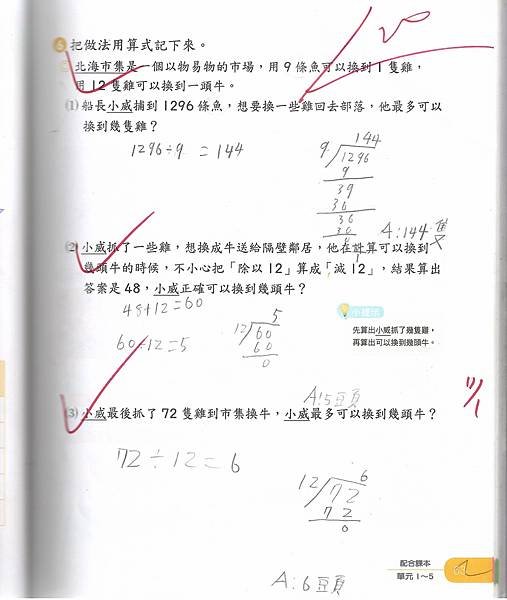 6 把做法用算式記下來。
北海市集是一個以物易物的市場，用9條魚可以換到1隻雞，
用12隻雞可以換到一頭牛。
(1) 船長小威捕到1296條魚，想要換一些雞回去部落，他最多可以
換到幾隻雞？
1296÷9 = 144
144
9 1296
9
39
36
36
36
0
A:144隻
(2) 小威抓了一些雞，想換成牛送給隔壁鄰居，他在計算可以換到
幾頭牛的時候，不小心把「除以12」算成「減12」，結果算出
答案是48，小威正確可以換到幾頭牛？
48+12=60
60÷12=5
5
12 60
60
0
小提示
先算出小威抓了幾隻雞，
再算出可以換到幾頭牛。
A:5頭
11/1
(3) 小威最後抓了72隻雞到市集換牛，小威最多可以換到幾頭牛？
72÷12=6
6
12 72
72
0
A:6頭
配合課本
單元1～5